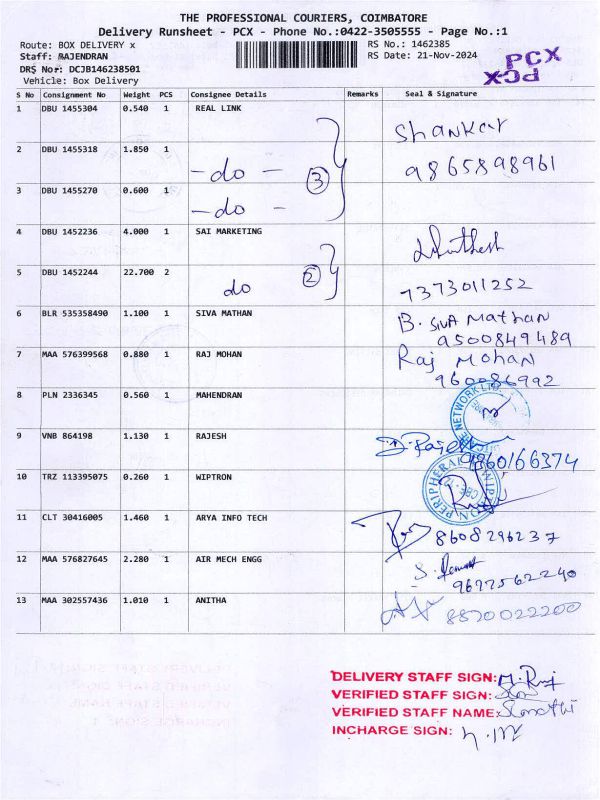 THE PROFESSIONAL COURIERS, COIMBATORE
Delivery Runsheet - PCX - Phone No.:0422-3505555 - Page No.:1
Route: BOX DELIVERY x
RS No.: 1462385
Staff: RAJENDRAN
RS Date: 21-Nov-2024
DRS No#: DCJB146238501
Vehicle: Box Delivery
PCX
PCX
S No Consignment No Weight PCS Consignee Details Remarks Seal & Signature
1 DBU 1455304 0.540 1 REAL LINK Shankar
2 DBU 1455318 1.850 1 - do - 3 9865898961
3 DBU 1455270 0.600 1 - do -
4 DBU 1452236 4.000 1 SAI MARKETING
5 DBU 1452244 22.700 2 do 2 7373011252
6 BLR 535358490 1.100 1 SIVA MATHAN B. SIVA Mathan
9500849489
7 MAA 576399568 0.880 1 RAJ MOHAN Raj MOHAN
960086992
8 PLN 2336345 0.560 1 MAHENDRAN NETWORK
9 VNB 864198 1.130 1 RAJESH
9860166374
10 TRZ 113395075 0.260 1 WIPTRON WIPTRON PERIPHERA
11 CLT 30416005 1.460 1 ARYA INFO TECH 8608296237
12 MAA 576827645 2.280 1 AIR MECH ENGG
9677562240
13 MAA 302557436 1.010 1 ANITHA 8870022200
DELIVERY STAFF SIGN:
VERIFIED STAFF SIGN:
VERIFIED STAFF NAME:
INCHARGE SIGN: